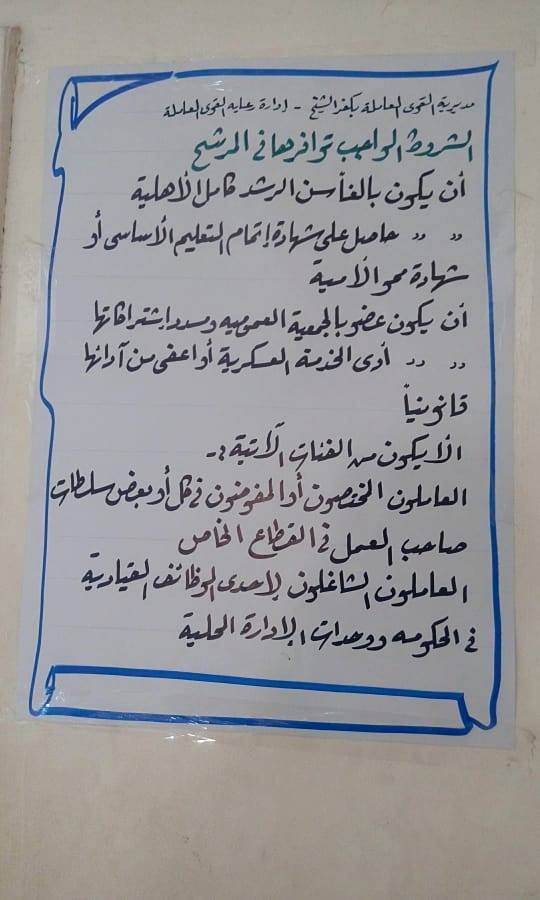 مديرية القوى العاملة بكفر الشيخ - إدارة رعاية القوى العاملة
الشروط الواجب توافرها في المرشح
أن يكون بالغاً سن الرشد كامل الأهلية
" " حاصل على شهادة إتمام التعليم الأساسى أو
شهادة محو الأمية
أن يكون عضو بالجمعية العموميه ومسدد إشتراكاتها
" " أدى الخدمة العسكرية أو اعفى من آدائها
قانونياً
ألا يكون من الفئات الآتية :-
العاملون المختصون أو المفوضون في كل أو بعض سلطات
صاحب العمل في القطاع الخاص
العاملون الشاغلون لإحدى الوظائف القيادية
في الحكومه ووحدات الإدارة المحلية